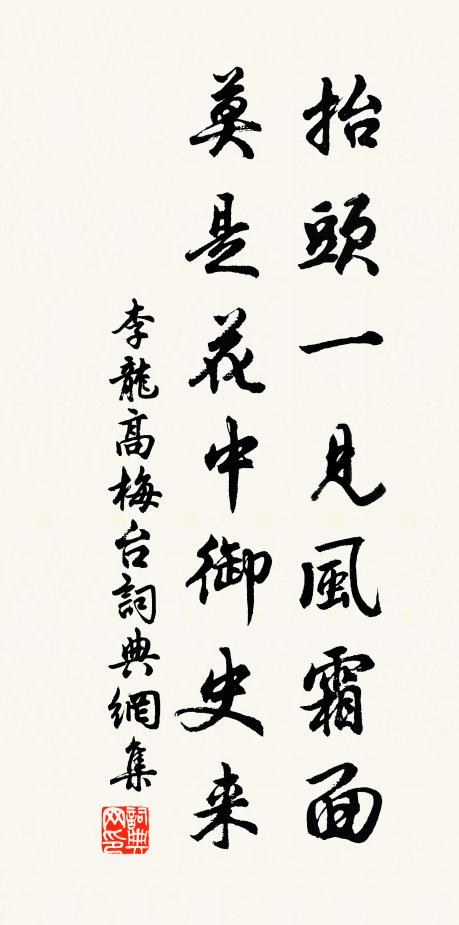 抬頭一見風霜面
莫是花中御史来
李龍高梅台詞典網集
詞典网印